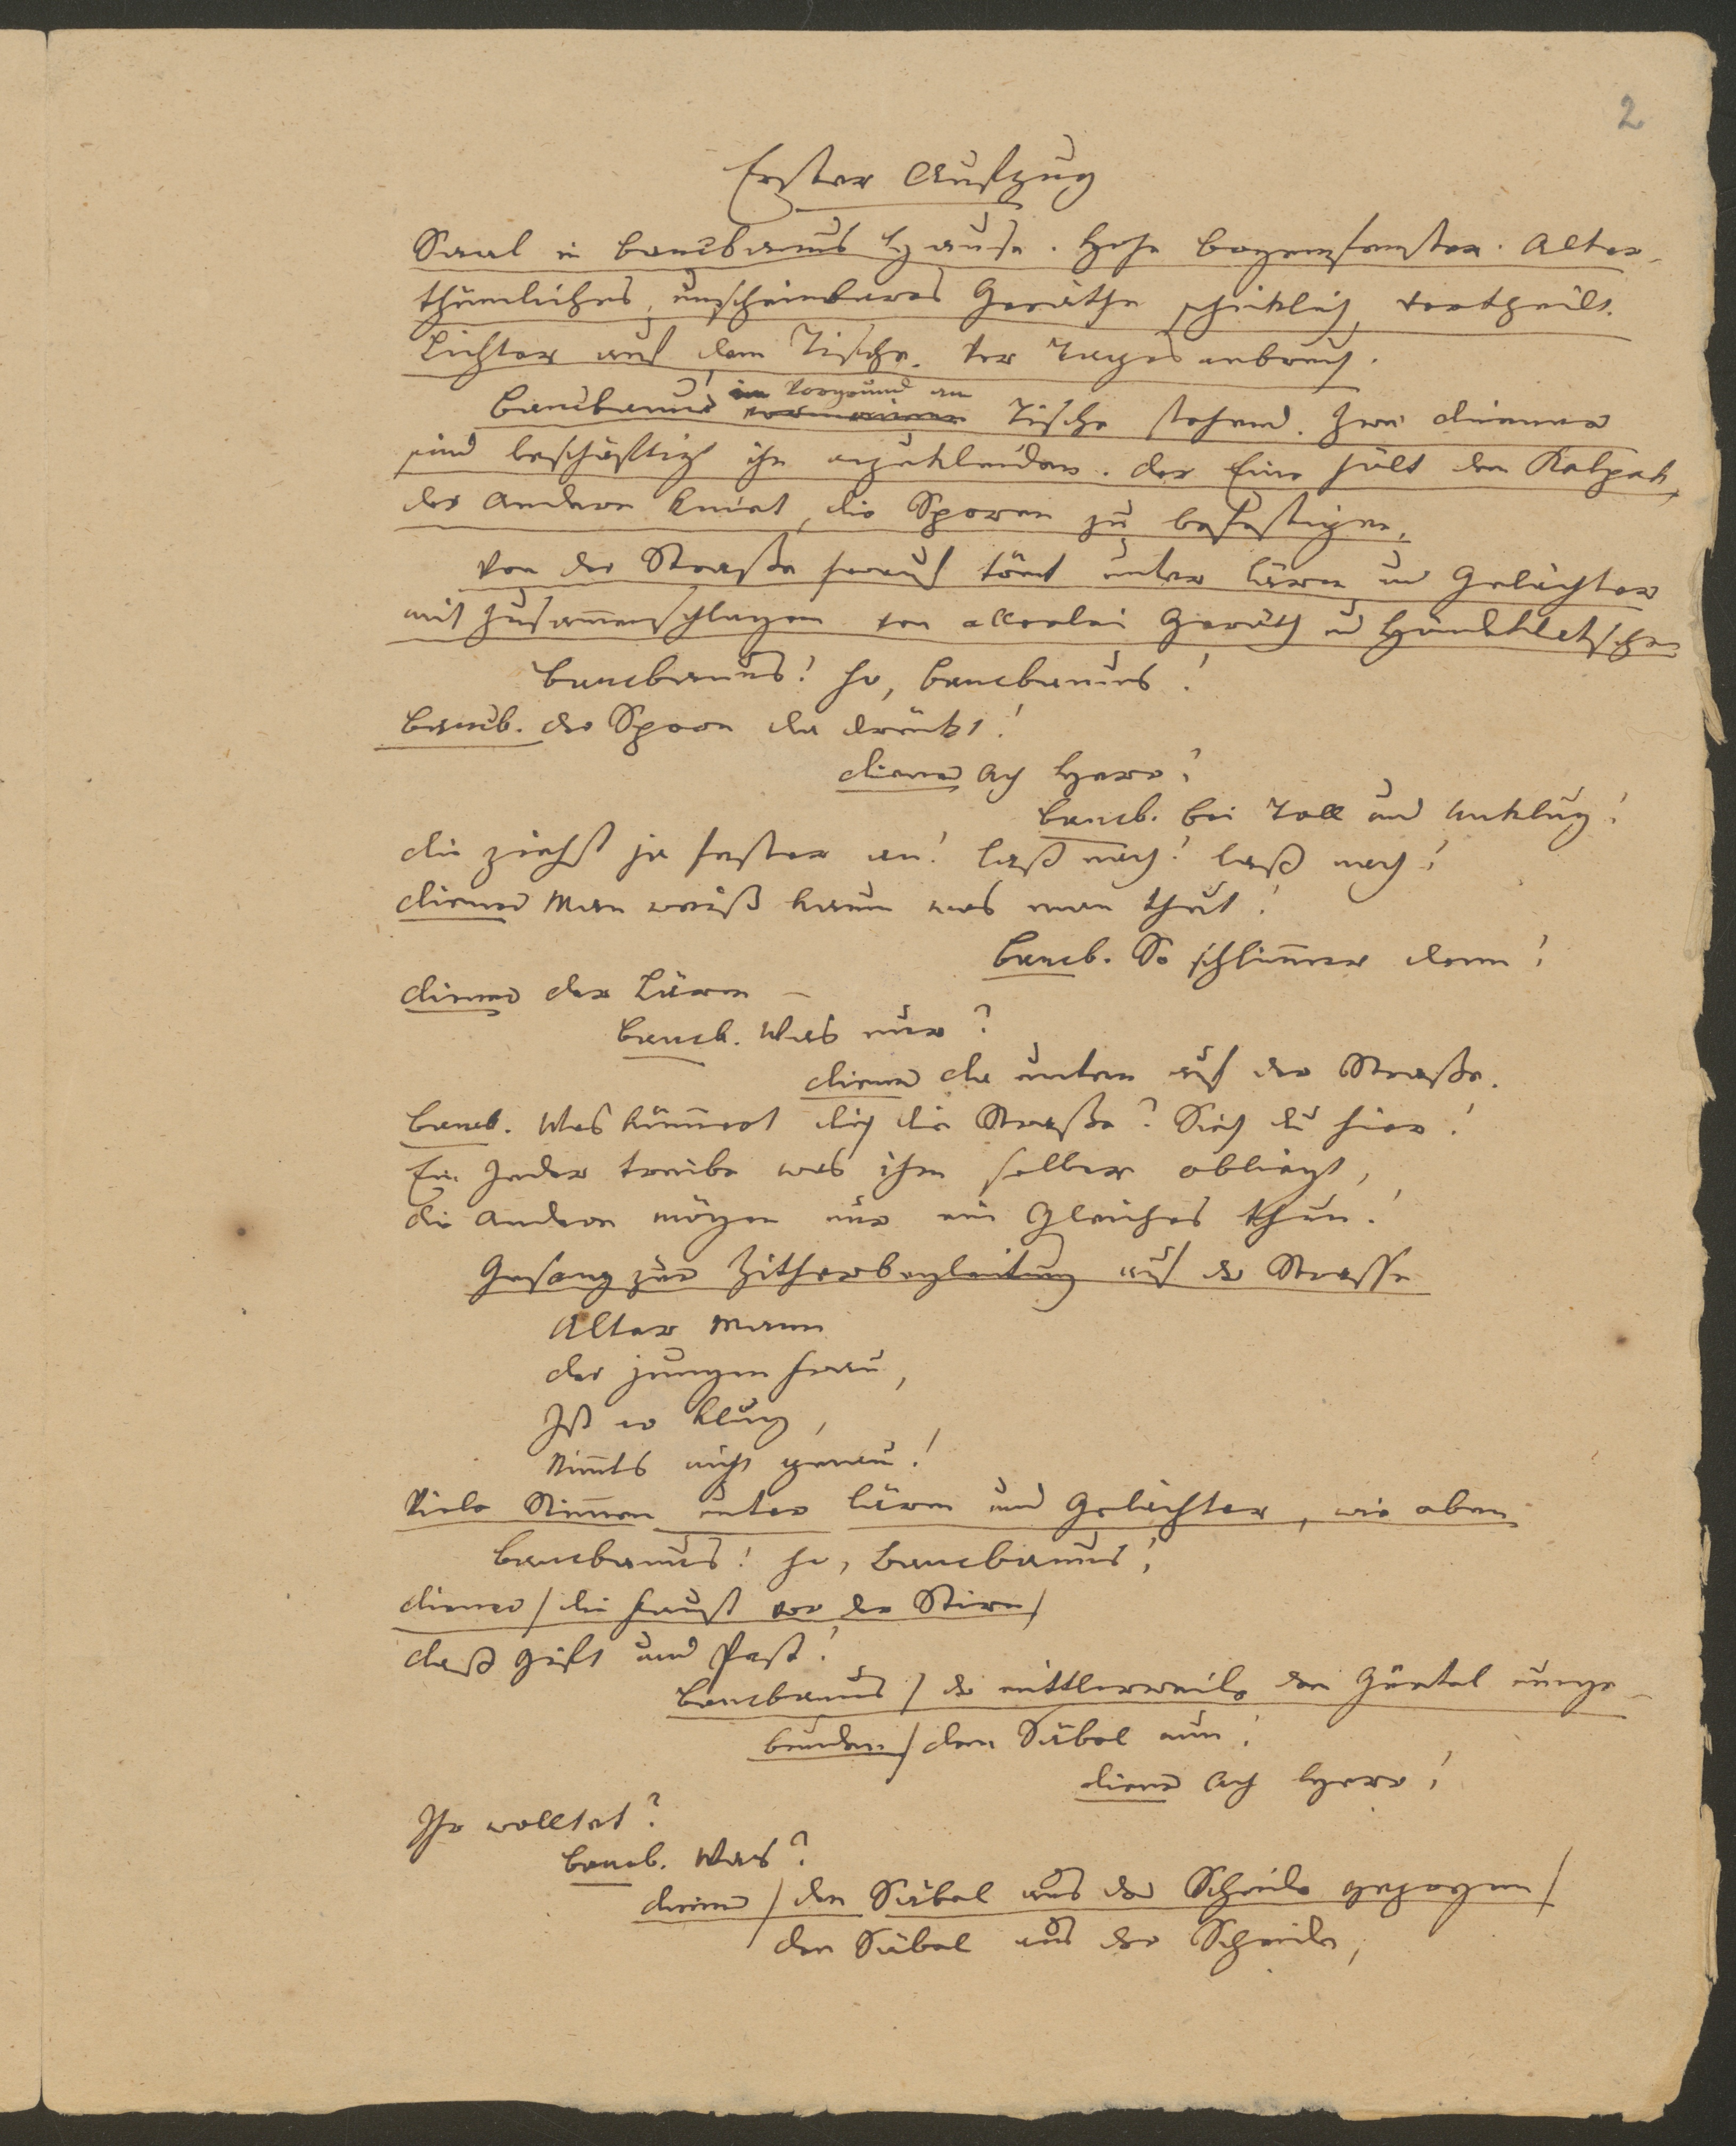 2
Erster Aufzug
Saal in Bancbanus Hause. Hohe Bogenfenster. Alter-
thümliches, unscheinbares Geräthe schicklich vertheilt.
Lichter auf dem Tische. Vor Tagesanbruch.
im Vorgrund am
Bancbanus Tische stehend. Zwei Diener
sind beschäftigt ihn anzukleiden. Der Eine hält den Kalpak,
der Andere kniet, die Sporen zu befestigen.
Von der Straße herauf tönt unter Lärm und Gelächter
mit Zusam̄enschlagen von allerlei Geräth und Händeklatschen
Bancbanus! ho, Bancbanus!
Bancb. Der Sporn da drückt!
Diener Ach Herr!
Bancb. Bei Toll und Unklug!
Du ziehst ja fester an! laß nach! laß nach!
Diener Man weiß kaum was man thut!
Bancb. So schlim̄er denn!
Diener Der Lärm –
Bancb. Was nur?
Diener Da unten auf der Straße.
Bancb. Was küm̄ert dich die Straße? Sieh du hier!
Ein Jeder treibe was ihm selber obliegt,
Die Andern mögen nur ein Gleiches thun!
Gesang zur Zitherbegleitung auf der Strasse
Alter Mann
Der jungen Frau,
Ist er klug,
Nim̄ts nicht genau!
Viele Stim̄en unter Lärm und Gelächter, wie oben
Bancbanus! ho, Bancbanus!
Diener / die Faust vor der Stirn /
Daß Gift und Pest!
Bancbanus / der mittlerweile den Gürtel umge-
bunden / Den Säbel nun!
Diener Ach Herr!
Ihr wolltet?
Bancb. Was?
Diener / den Säbel aus der Scheide gezogen /
Den Säbel aus der Scheide,